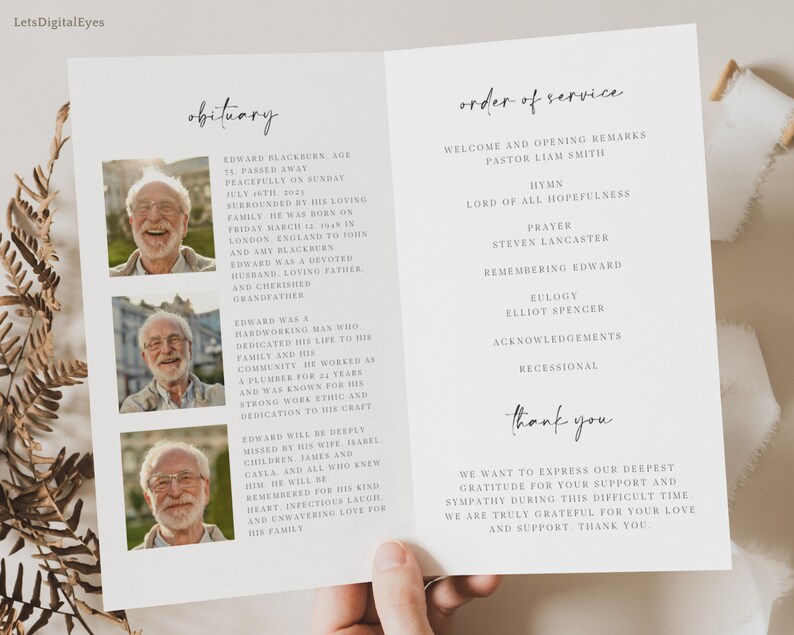 LetsDigitalEyes
obituary
EDWARD BLACKBURN, AGE
75, PASSED AWAY
PEACEFULLY ON SUNDAY
JULY 16TH, 2023
SURROUNDED BY HIS LOVING
FAMILY. HE WAS BORN ON
FRIDAY MARCH 12, 1948 IN
LONDON, ENGLAND TO JOHN
AND AMY BLACKBURN.
EDWARD WAS A DEVOTED
HUSBAND, LOVING FATHER,
AND CHERISHED
GRANDFATHER.
EDWARD WAS A
HARDWORKING MAN WHO
DEDICATED HIS LIFE TO HIS
FAMILY AND HIS
COMMUNITY. HE WORKED AS
A PLUMBER FOR 24 YEARS
AND WAS KNOWN FOR HIS
STRONG WORK ETHIC AND
DEDICATION TO HIS CRAFT.
EDWARD WILL BE DEEPLY
MISSED BY HIS WIFE, ISABEL,
CHILDREN, JAMES AND
CAYLA, AND ALL WHO KNEW
HIM. HE WILL BE
REMEMBERED FOR HIS KIND
HEART, INFECTIOUS LAUGH,
AND UNWAVERING LOVE FOR
HIS FAMILY
order of service
WELCOME AND OPENING REMARKS
PASTOR LIAM SMITH
HYMN
LORD OF ALL HOPEFULNESS
PRAYER
STEVEN LANCASTER
REMEMBERING EDWARD
EULOGY
ELLIOT SPENCER
ACKNOWLEDGEMENTS
RECESSIONAL
thank you
WE WANT TO EXPRESS OUR DEEPEST
GRATITUDE FOR YOUR SUPPORT AND
SYMPATHY DURING THIS DIFFICULT TIME.
WE ARE TRULY GRATEFUL FOR YOUR LOVE
AND SUPPORT. THANK YOU.